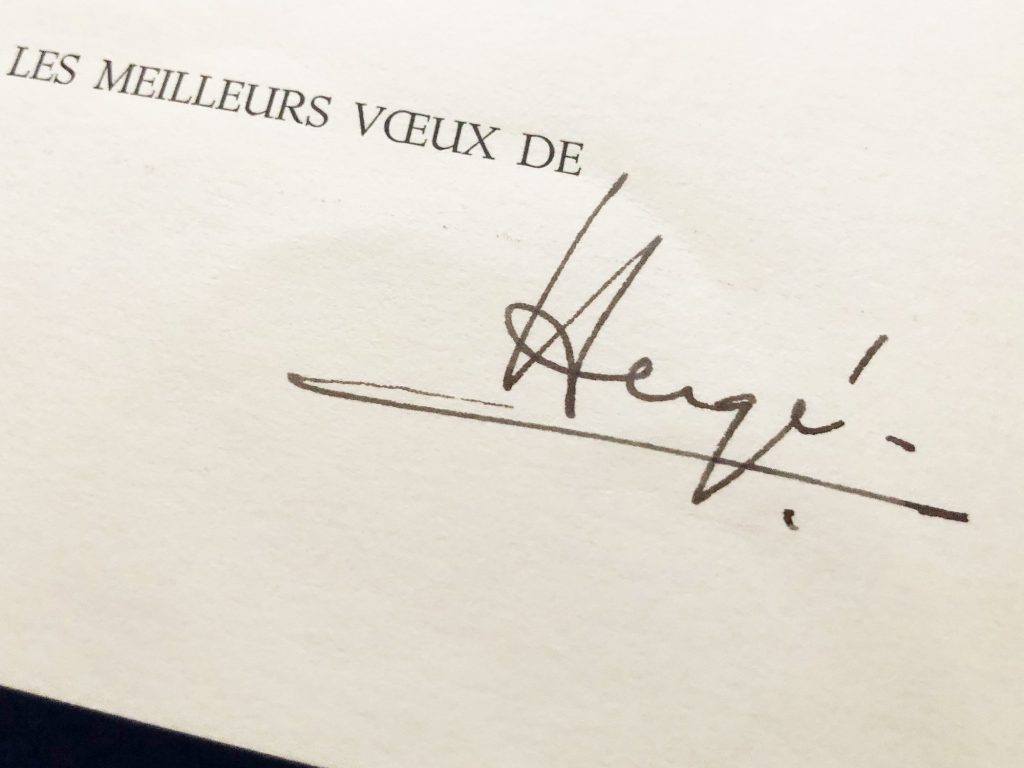 LES MEILLEURS VŒUX DE
Hergé